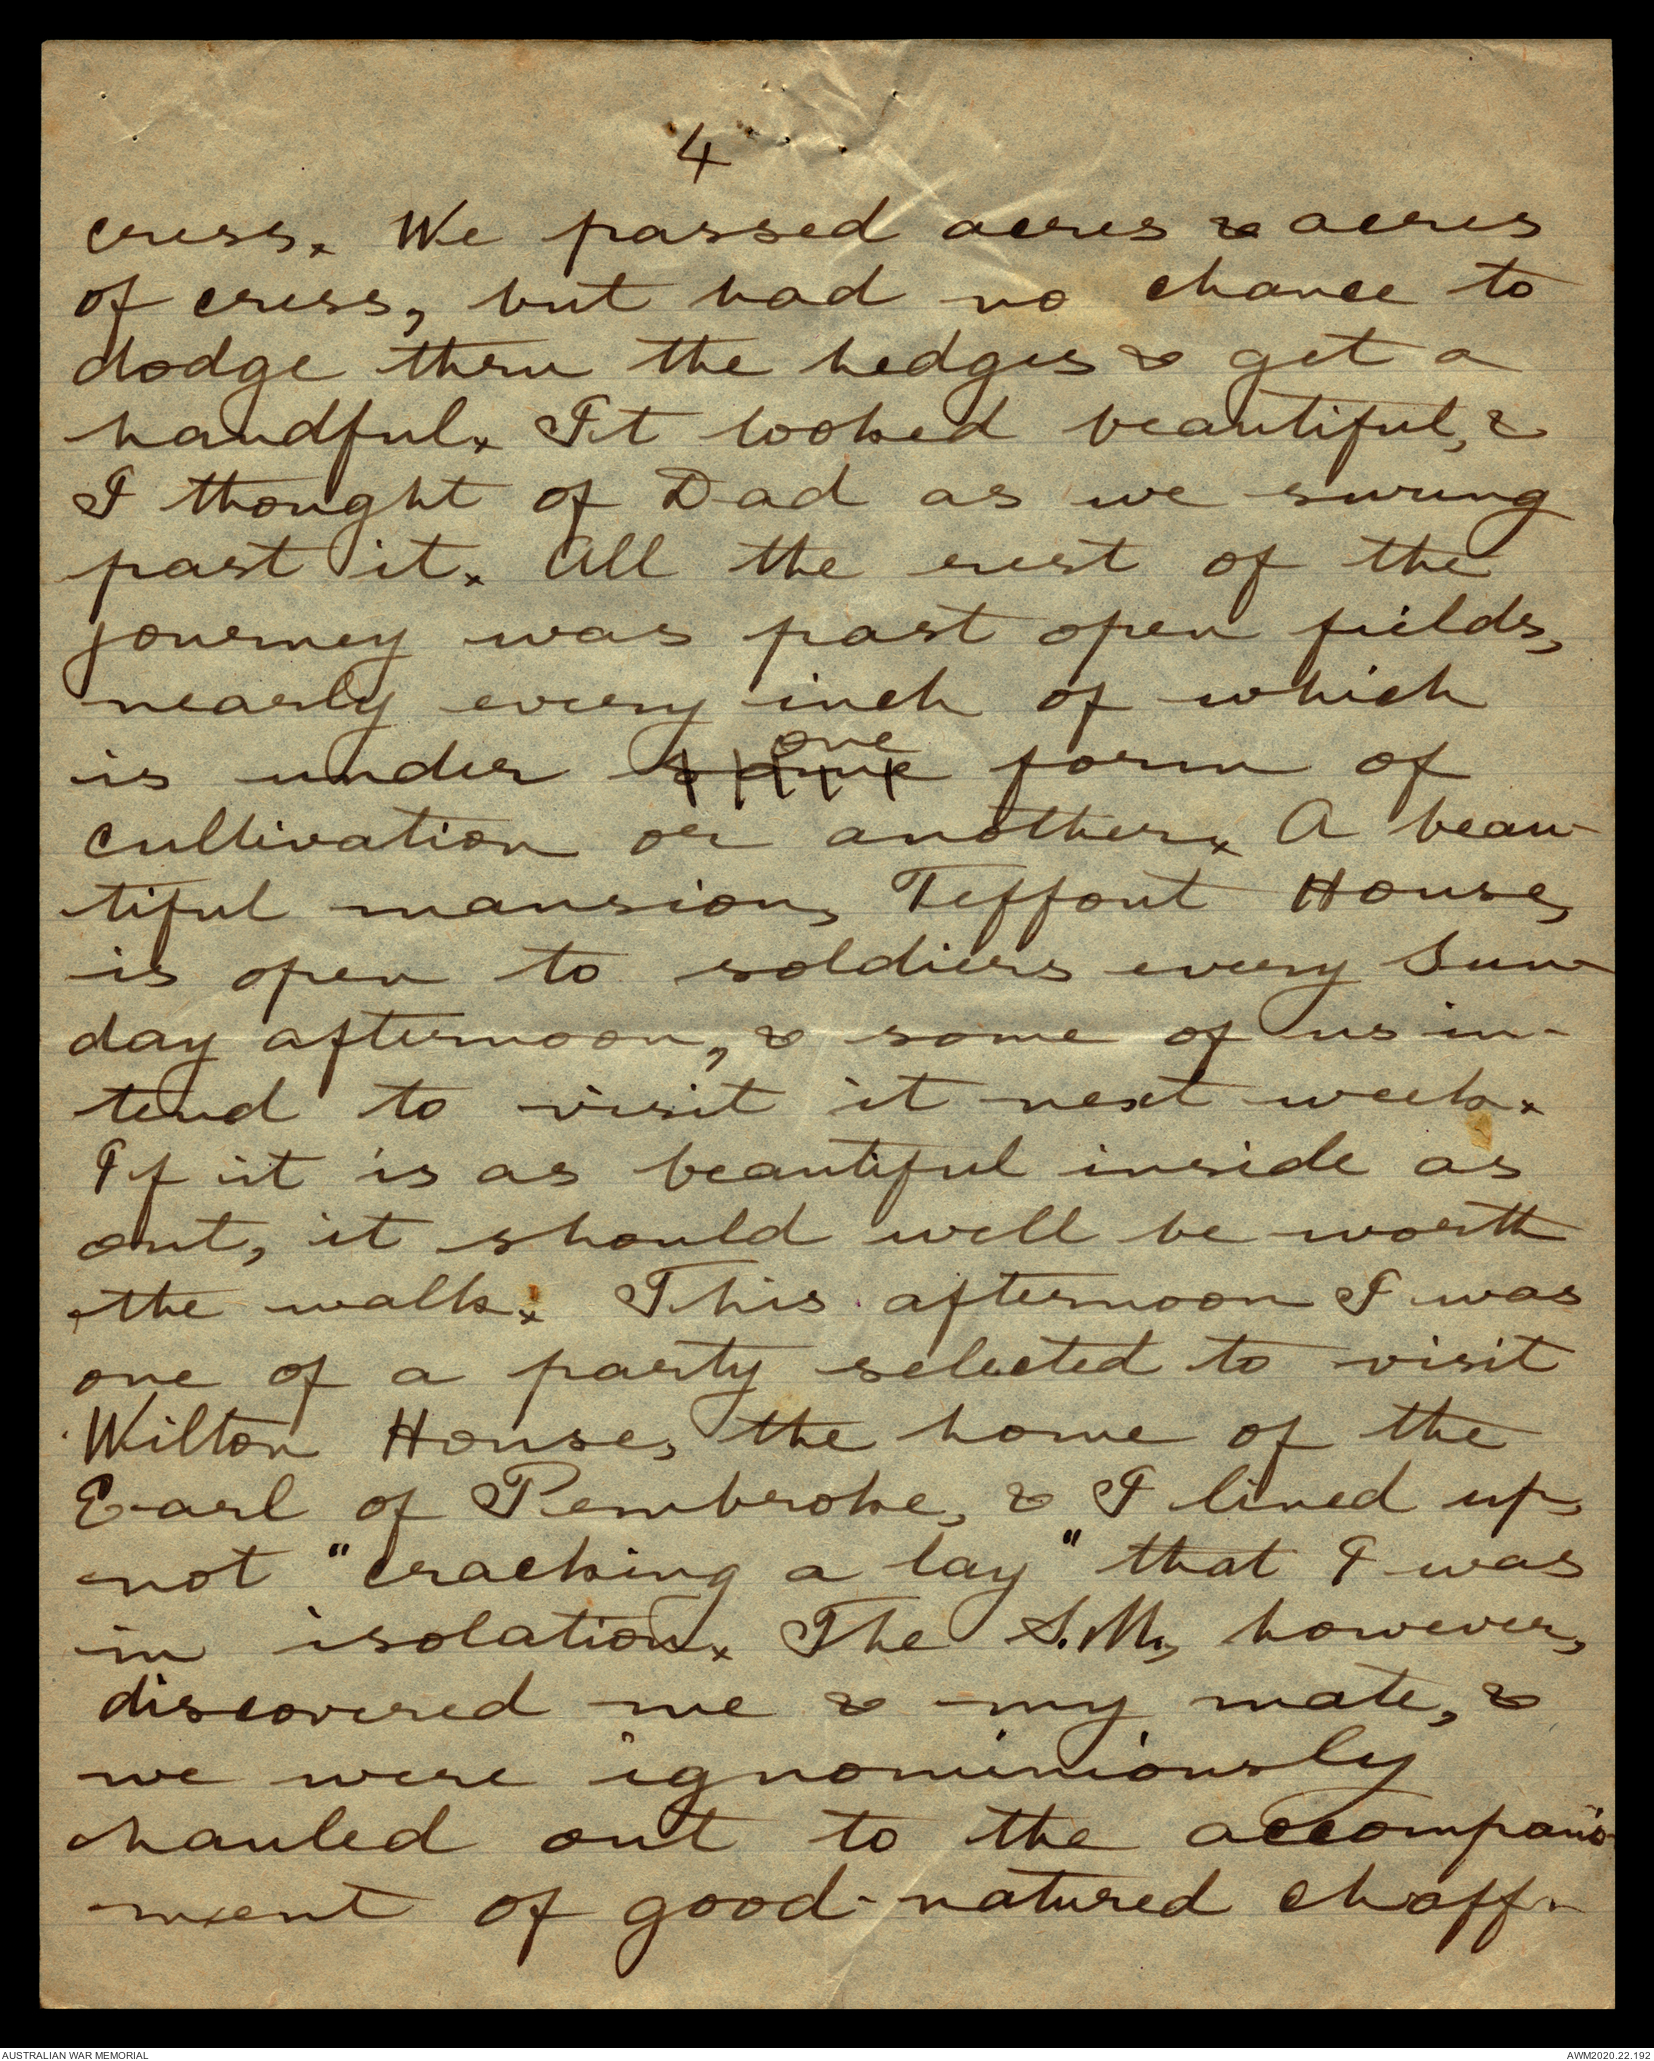 4
cress. We passed acres & acres
of cress, but had no chance to
dodge thru the hedges & get a
handful. It looked beautiful, &
I thought of Dad as we swung
past it. All the rest of the
journey was past open fields,
nearly every inch of which
one
is under some form of
cultivation or another. A beau-
tiful mansion, Teffont House,
is open to soldiers every Sun-
day afternoon, & some of us in-
tend to visit it next week.
If it is as beautiful inside as
out, it should well be worth
the walk. This afternoon I was
one of a party selected to visit
Wilton House, the home of the
Earl of Pembroke, & I lined up,
not "cracking a lay" that I was
in isolation. The S.M., however,
discovered me & my mate, &
we were ignominiously
hauled out to the accompani-
ment of good-natured chaff-
AUSTRALIAN WAR MEMORIAL
AWM2020.22.192